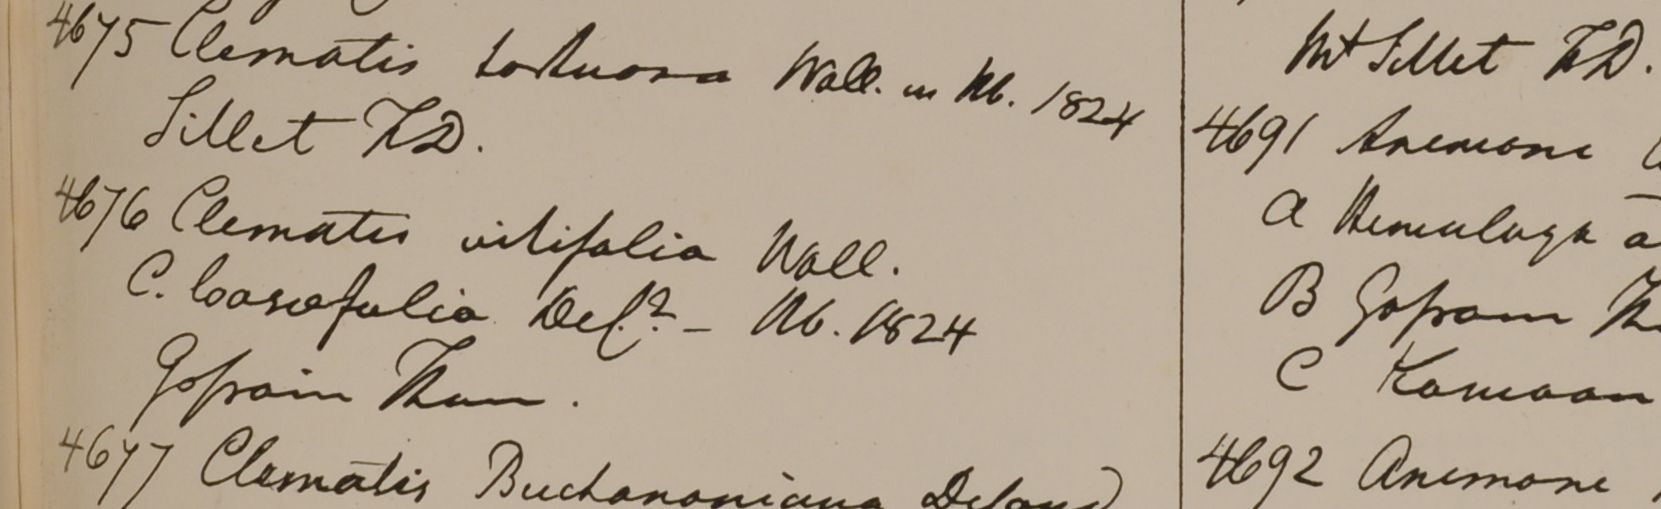 4675 Clematis tortuosa Wall. in Hb. 1824
Sillet F.D.
4676 Clematis vitifolia Wall.
C. Def.? – Hb. 1824
Gossain Than.
4677 Clematis Buchananiana
Mt Sillet F.D.
4691 Anemone
a
B Gossain
C Kamaon
4692 Anemone